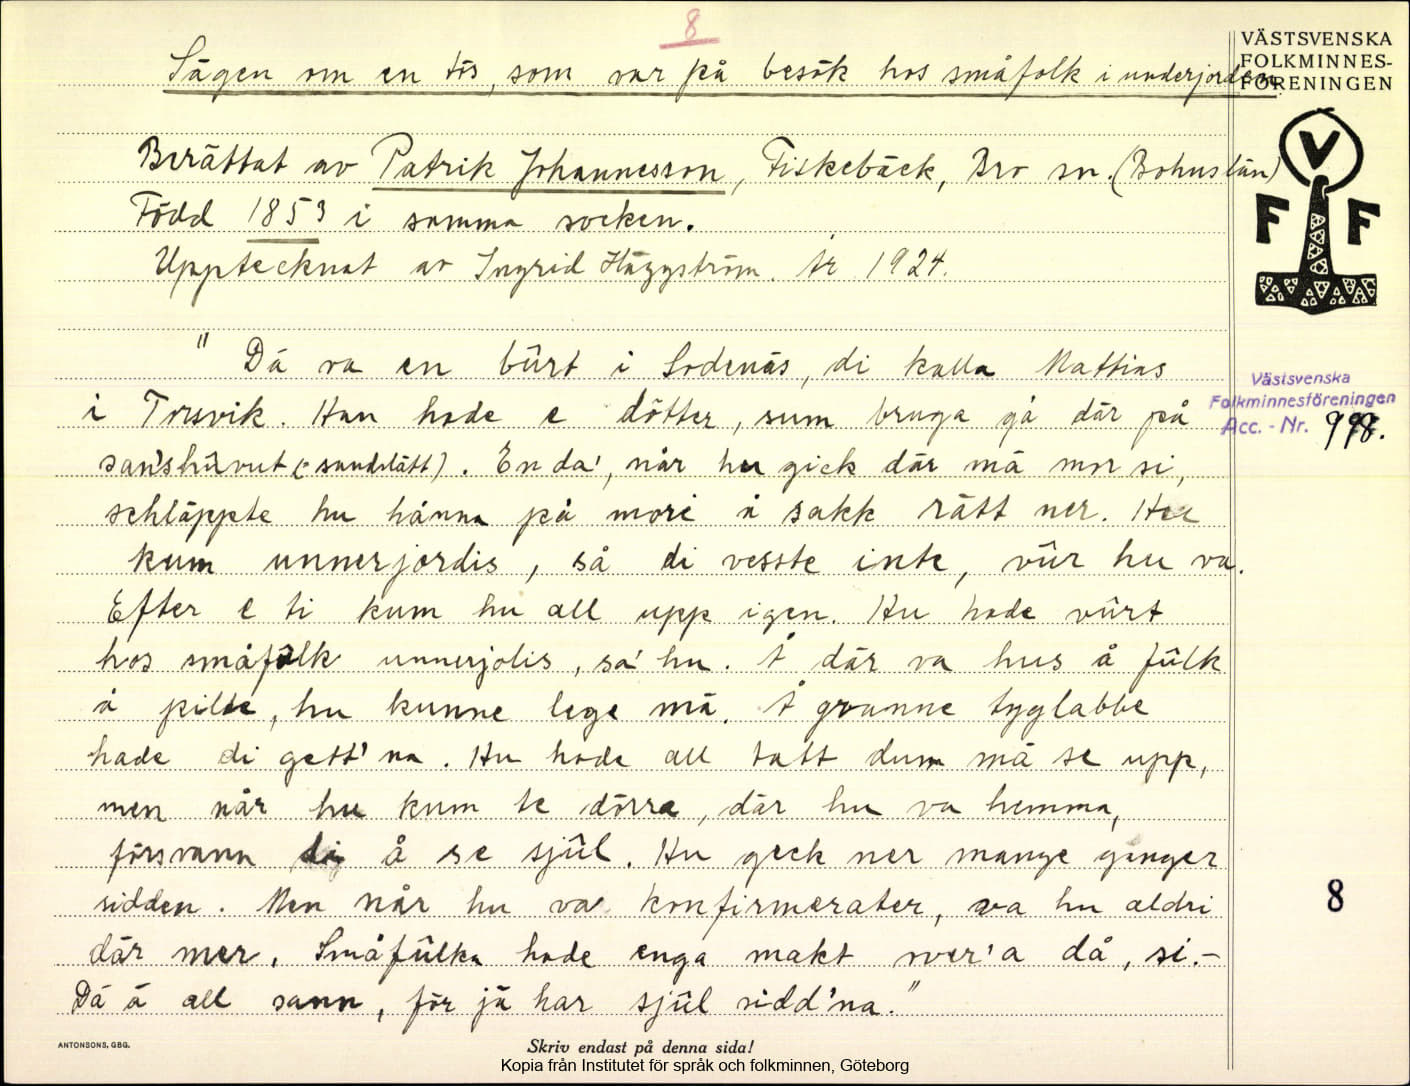 8
Sägen om en tös, som var på besök hos småfolk i underjorden.
VÄSTSVENSKA
FOLKMINNES-
FÖRENINGEN
V
F F
Berättat av Patrik Johannesson, Fiskebäck, Bro sn. (Bohuslän)
Född 1853 i samma socken.
Upptecknat av Ingrid Häggström. År 1924.
" Dä va en bûrt i Sodenäs, di kalla Mattias
i Torsvik. Han hade e dötter, sum bruga gå där på
san'shûvut (: sandslätt). En da', når hu gick där mä mor si,
schläppte hu hånna på more å sakk rätt ner. Hu
kum unnerjordis, så di vesste inte, vûr hu va.
Efter e ti kum hu all upp igen. Hu hade vûrt
hos småfolk unnerjolis, sa' hu. Å där va hus å fûlk
å pilte, hu kunne lege mä. Å granne tyglabbe
hade di gett'na. Hu hade all tatt dum mä se upp,
men når hu kum te dörra, där hu va hemma,
försvann di å se sjûl. Hu geck ner mange ganger
sidden. Men når hu va konfirmerater, va hu aldri
där mer. Småfûlka hade enga makt over'a då, si.-
Dä ä all sann, för jä har sjûl sidd'na."
Västsvenska
Folkminnesföreningen
Acc. - Nr. 998.
8
ANTONSONS, GBG.
Skriv endast på denna sida!
Kopia från Institutet för språk och folkminnen, Göteborg